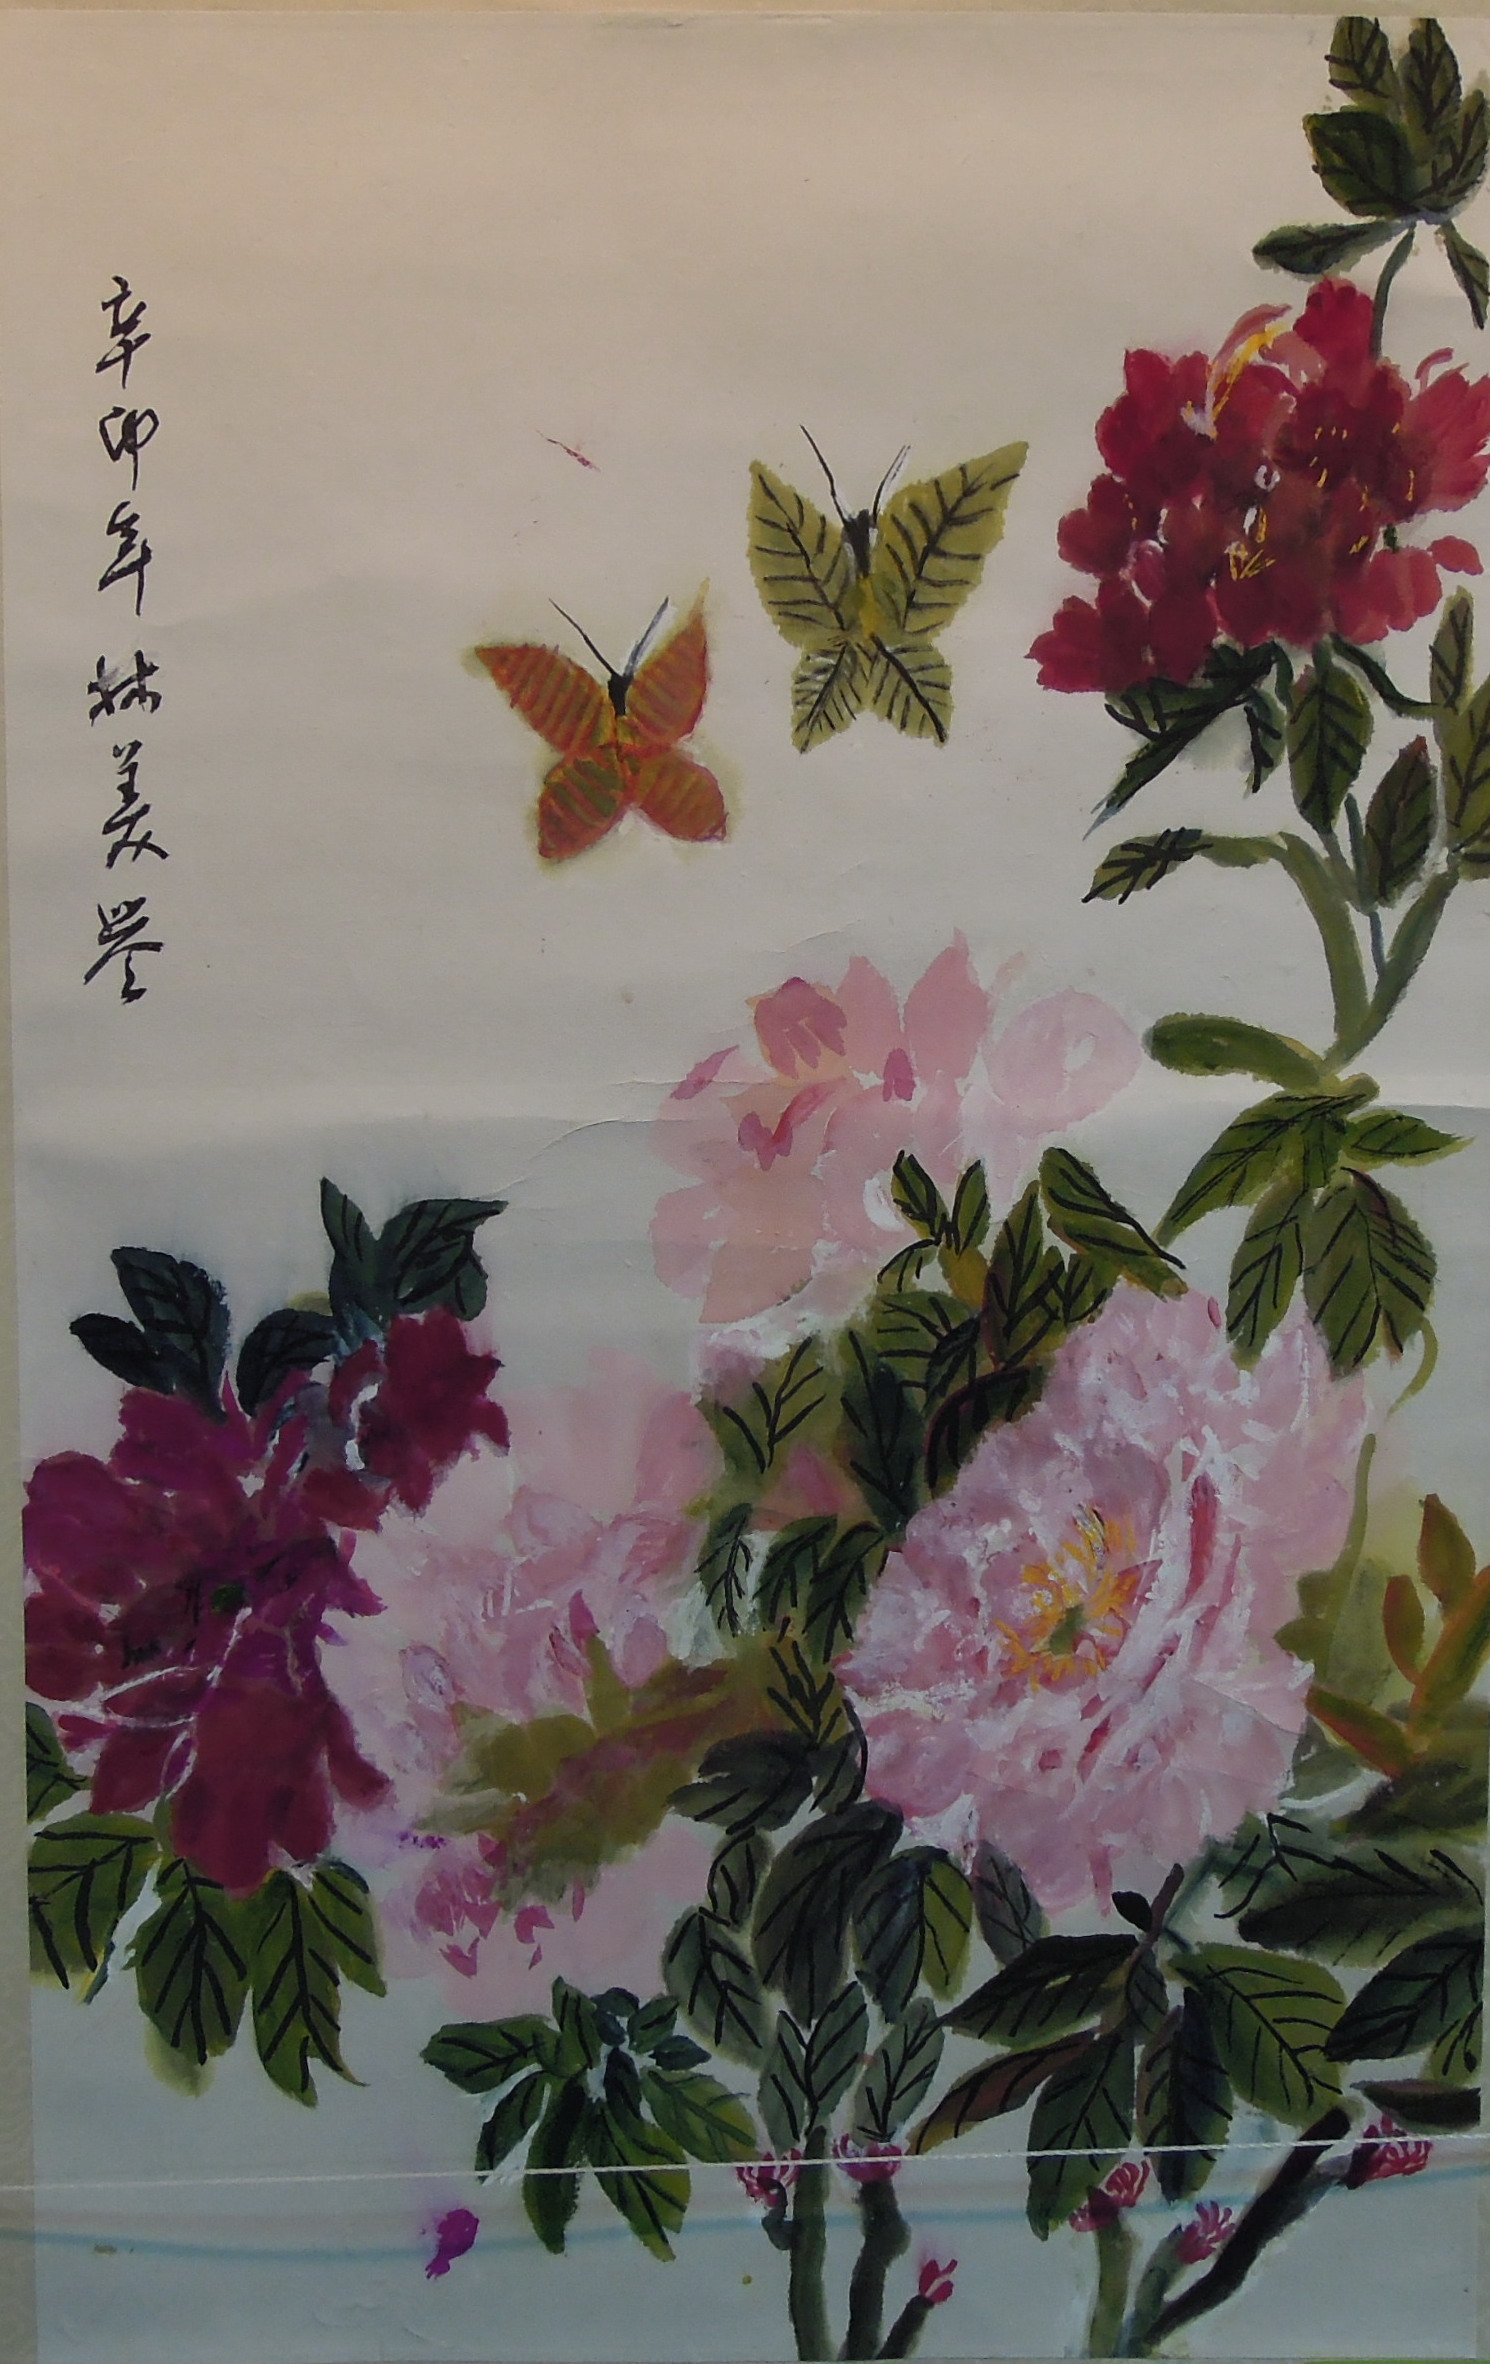 辛卯年林美誉